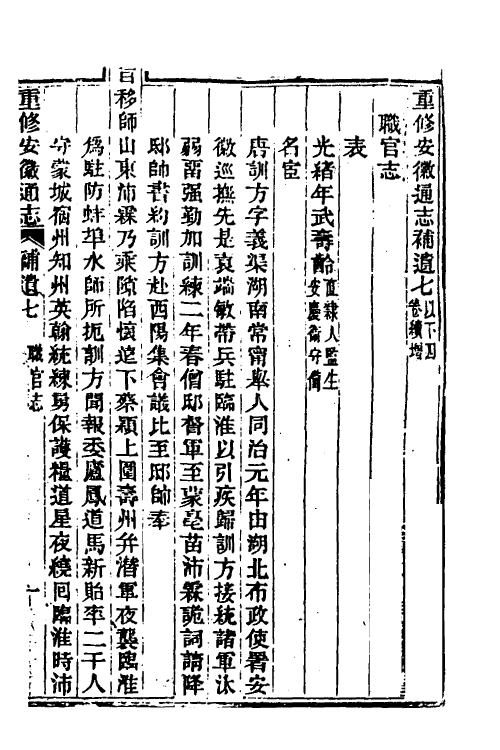 重修安徽通志補遺七以下四卷續增
職官志
表
光緒年武壽齡直隸人監生安慶衛守備
名宦
唐訓方字義渠湖南常甯舉人同治元年由湖北布政使署安
徽巡撫先是袁端敏帶兵駐臨淮以引疾歸訓方接統諸軍汰
弱留强勤加訓練二年春僧邸督軍至蒙亳苗沛霖詭詞請降
邸帥書約訓方赴酉陽集會議比至邸帥奉
旨移師山東沛霖乃乘隙陷懷遠下蔡潁上圍壽州并潛軍夜襲臨淮
爲駐防蚌埠水師所扼訓方聞報委廬鳳道馬新貽率二千人
守蒙城宿州知州英翰統練勇保護糧道星夜繞回臨淮時沛
重修安徽通志 補遺七 職官志 一